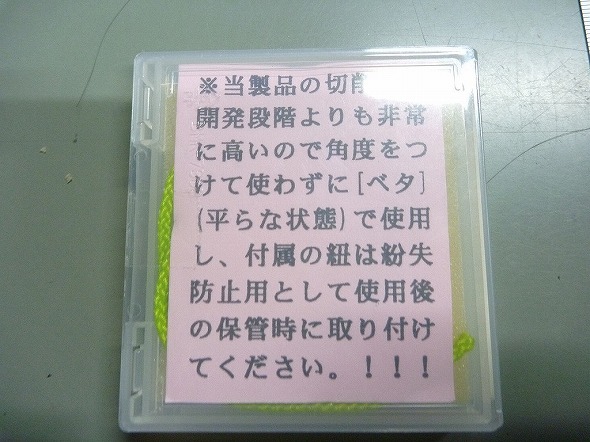 ※当製品の切削
開発段階よりも非常
に高いので角度をつ
けて使わずに[ベタ]
(平らな状態)で使用
し、付属の紐は紛失
防止用として使用後
の保管時に取り付け
てください。！！！